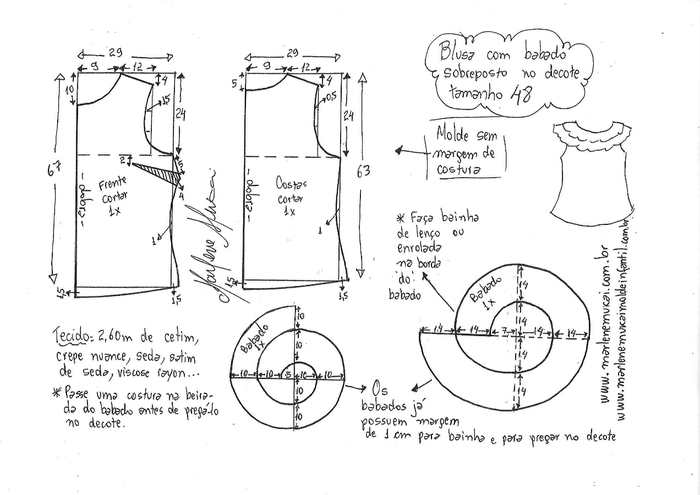 Blusa com babado
sobreposto no decote
tamanho 48
Molde sem
margem de
costura
29
9
12
4
10
1,5
24
67
2
5
4
Frente
cortar
1x
dobra
1
1,5
1,5
Marlene Mukai
29
9
12
4
5
0,5
24
63
Costas
cortar
1x
dobra
1
1,5
1,5
* Faça bainha
de lenço ou
enrolada
na borda
do
babado
Babado
1x
14
14
14
14
7
14
14
14
14
www.marlenemukai.com.br
www.marlenemukaimoldeinfantil.com.br
Tecido: 2,60m de cetim,
crepe nuance, seda, satim
de seda, viscose rayon...
* Passe uma costura na beira-
da do babado antes de pregá-lo
no decote.
Babado
1x
10
10
10
10
5
10
10
10
10
Os
babados já
possuem margem
de 1 cm para bainha e para pregar no decote